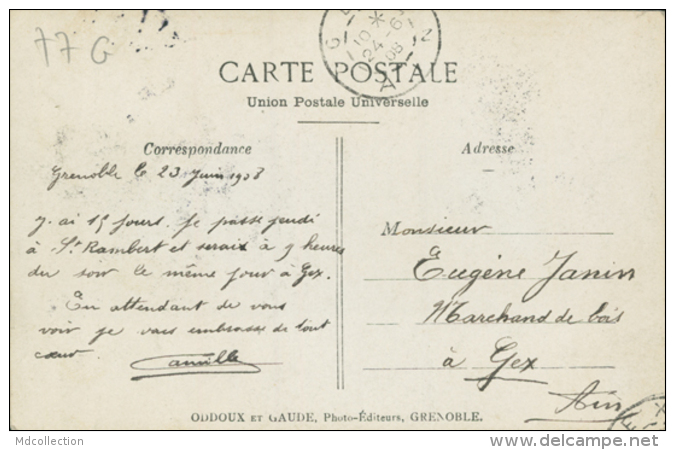 77 G
GEX
10
24-6
08
AIN
CARTE POSTALE
Union Postale Universelle
Correspondance
Adresse
Grenoble le 23 Juin 1908
J'ai 15 jours. Je passe jeudi
à St Rambert et serais à 9 heures
du soir le même jour à Gex.
En attendant de vous
voir je vous embrasse de tout
cœur. Camille
Monsieur
Eugène Janin
Marchand de bois
à Gex
Ain
ODDOUX ET GAUDE, Photo-Éditeurs, GRENOBLE.
Mdcollection
www.delcampe.net